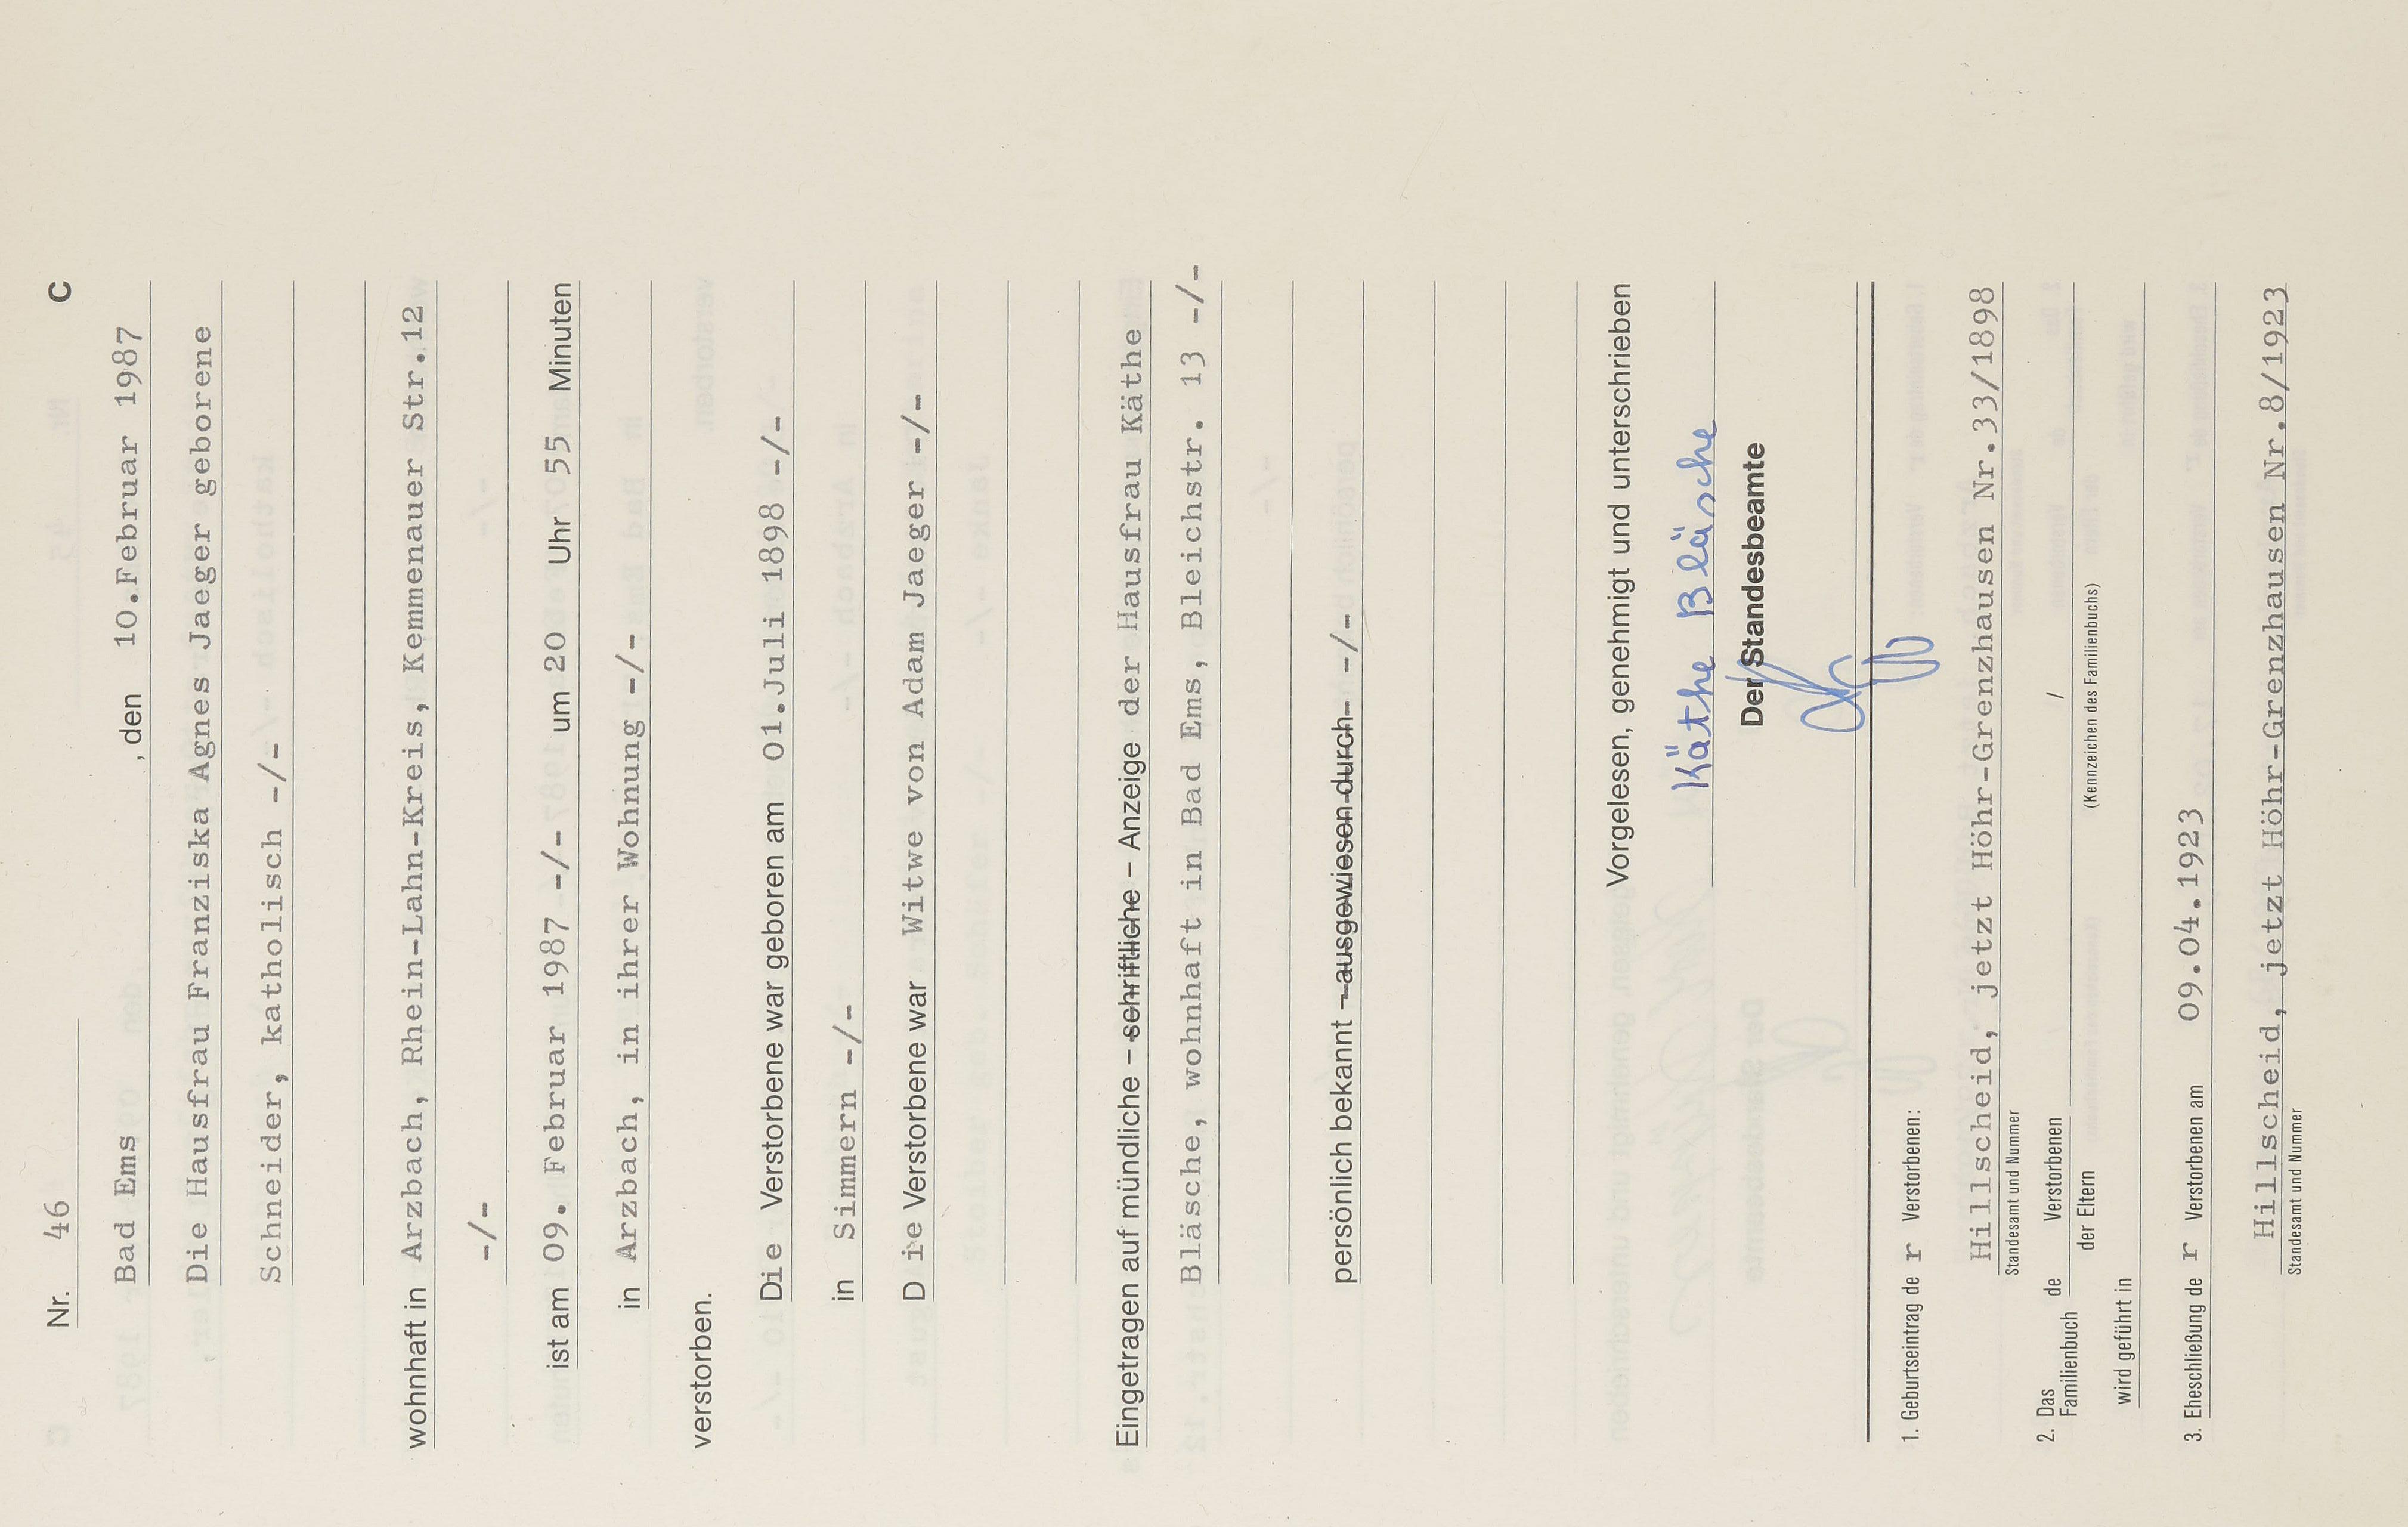 Nr. 46 C
Bad Ems , den 10.Februar 1987
Die Hausfrau Franziska Agnes Jaeger geborene
Schneider, katholisch -/-
wohnhaft in Arzbach, Rhein-Lahn-Kreis, Kemmenauer Str.12
-/-
ist am 09. Februar 1987 -/- um 20 Uhr 55 Minuten
in Arzbach, in ihrer Wohnung -/-
verstorben.
Die Verstorbene war geboren am 01.Juli 1898 -/-
in Simmern -/-
D ie Verstorbene war Witwe von Adam Jaeger -/-
Eingetragen auf mündliche – schriftliche – Anzeige der Hausfrau Käthe
Bläsche, wohnhaft in Bad Ems, Bleichstr. 13 -/-
persönlich bekannt – ausgewiesen durch -/-
Vorgelesen, genehmigt und unterschrieben
Käthe Bläsche
Der Standesbeamte
1. Geburtseintrag de r Verstorbenen:
Hillscheid, jetzt Höhr-Grenzhausen Nr.33/1898
Standesamt und Nummer
2. Das Familienbuch de Verstorbenen /
der Eltern
(Kennzeichen des Familienbuchs)
wird geführt in
3. Eheschließung de r Verstorbenen am 09.04.1923
Hillscheid, jetzt Höhr-Grenzhausen Nr.8/1923
Standesamt und Nummer